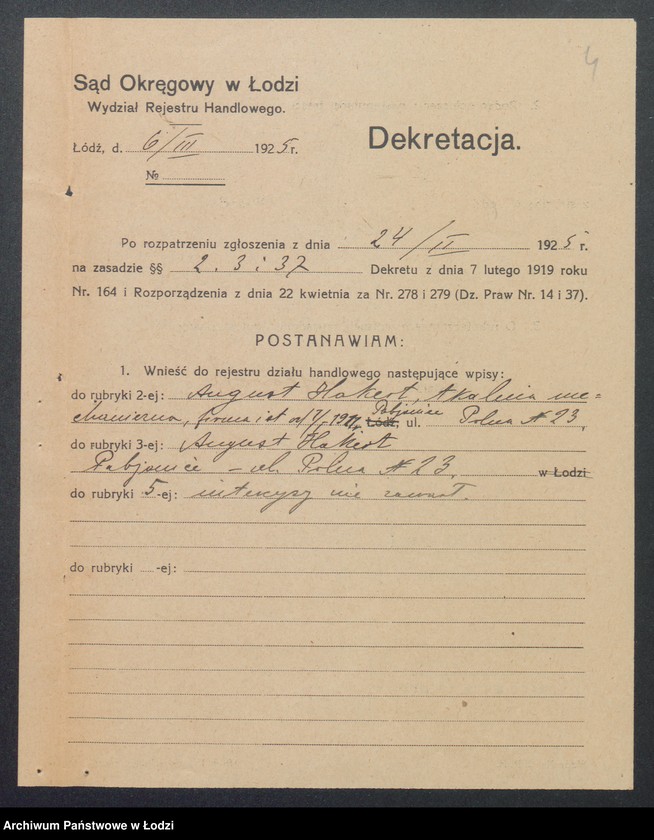 4
Sąd Okręgowy w Łodzi
Wydział Rejestru Handlowego.
Łódź, d. 6/III 1925 r.
№
Dekretacja.
Po rozpatrzeniu zgłoszenia z dnia 24/II 1925 r.
na zasadzie §§ 2. 3 i 37 Dekretu z dnia 7 lutego 1919 roku
Nr. 164 i Rozporządzenia z dnia 22 kwietnia za Nr. 278 i 279 (Dz. Praw Nr. 14 i 37).
POSTANAWIAM:
1. Wnieść do rejestru działu handlowego następujące wpisy:
do rubryki 2-ej: August Hakert, tkalnia me=
chaniczna, firma ist od 1911, Pabjanice Łódź, ul. Polna № 23.
do rubryki 3-ej: August Hakert
Pabjanice – ul. Polna № 23. w Łodzi
do rubryki 5-ej: intercyzy nie zawarł.
do rubryki -ej:
Archiwum Państwowe w Łodzi